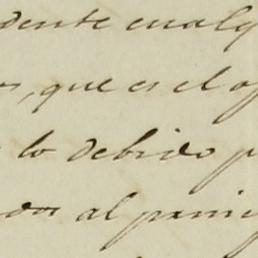 dente cualq
s, que es el o
lo debido p
dos al prin